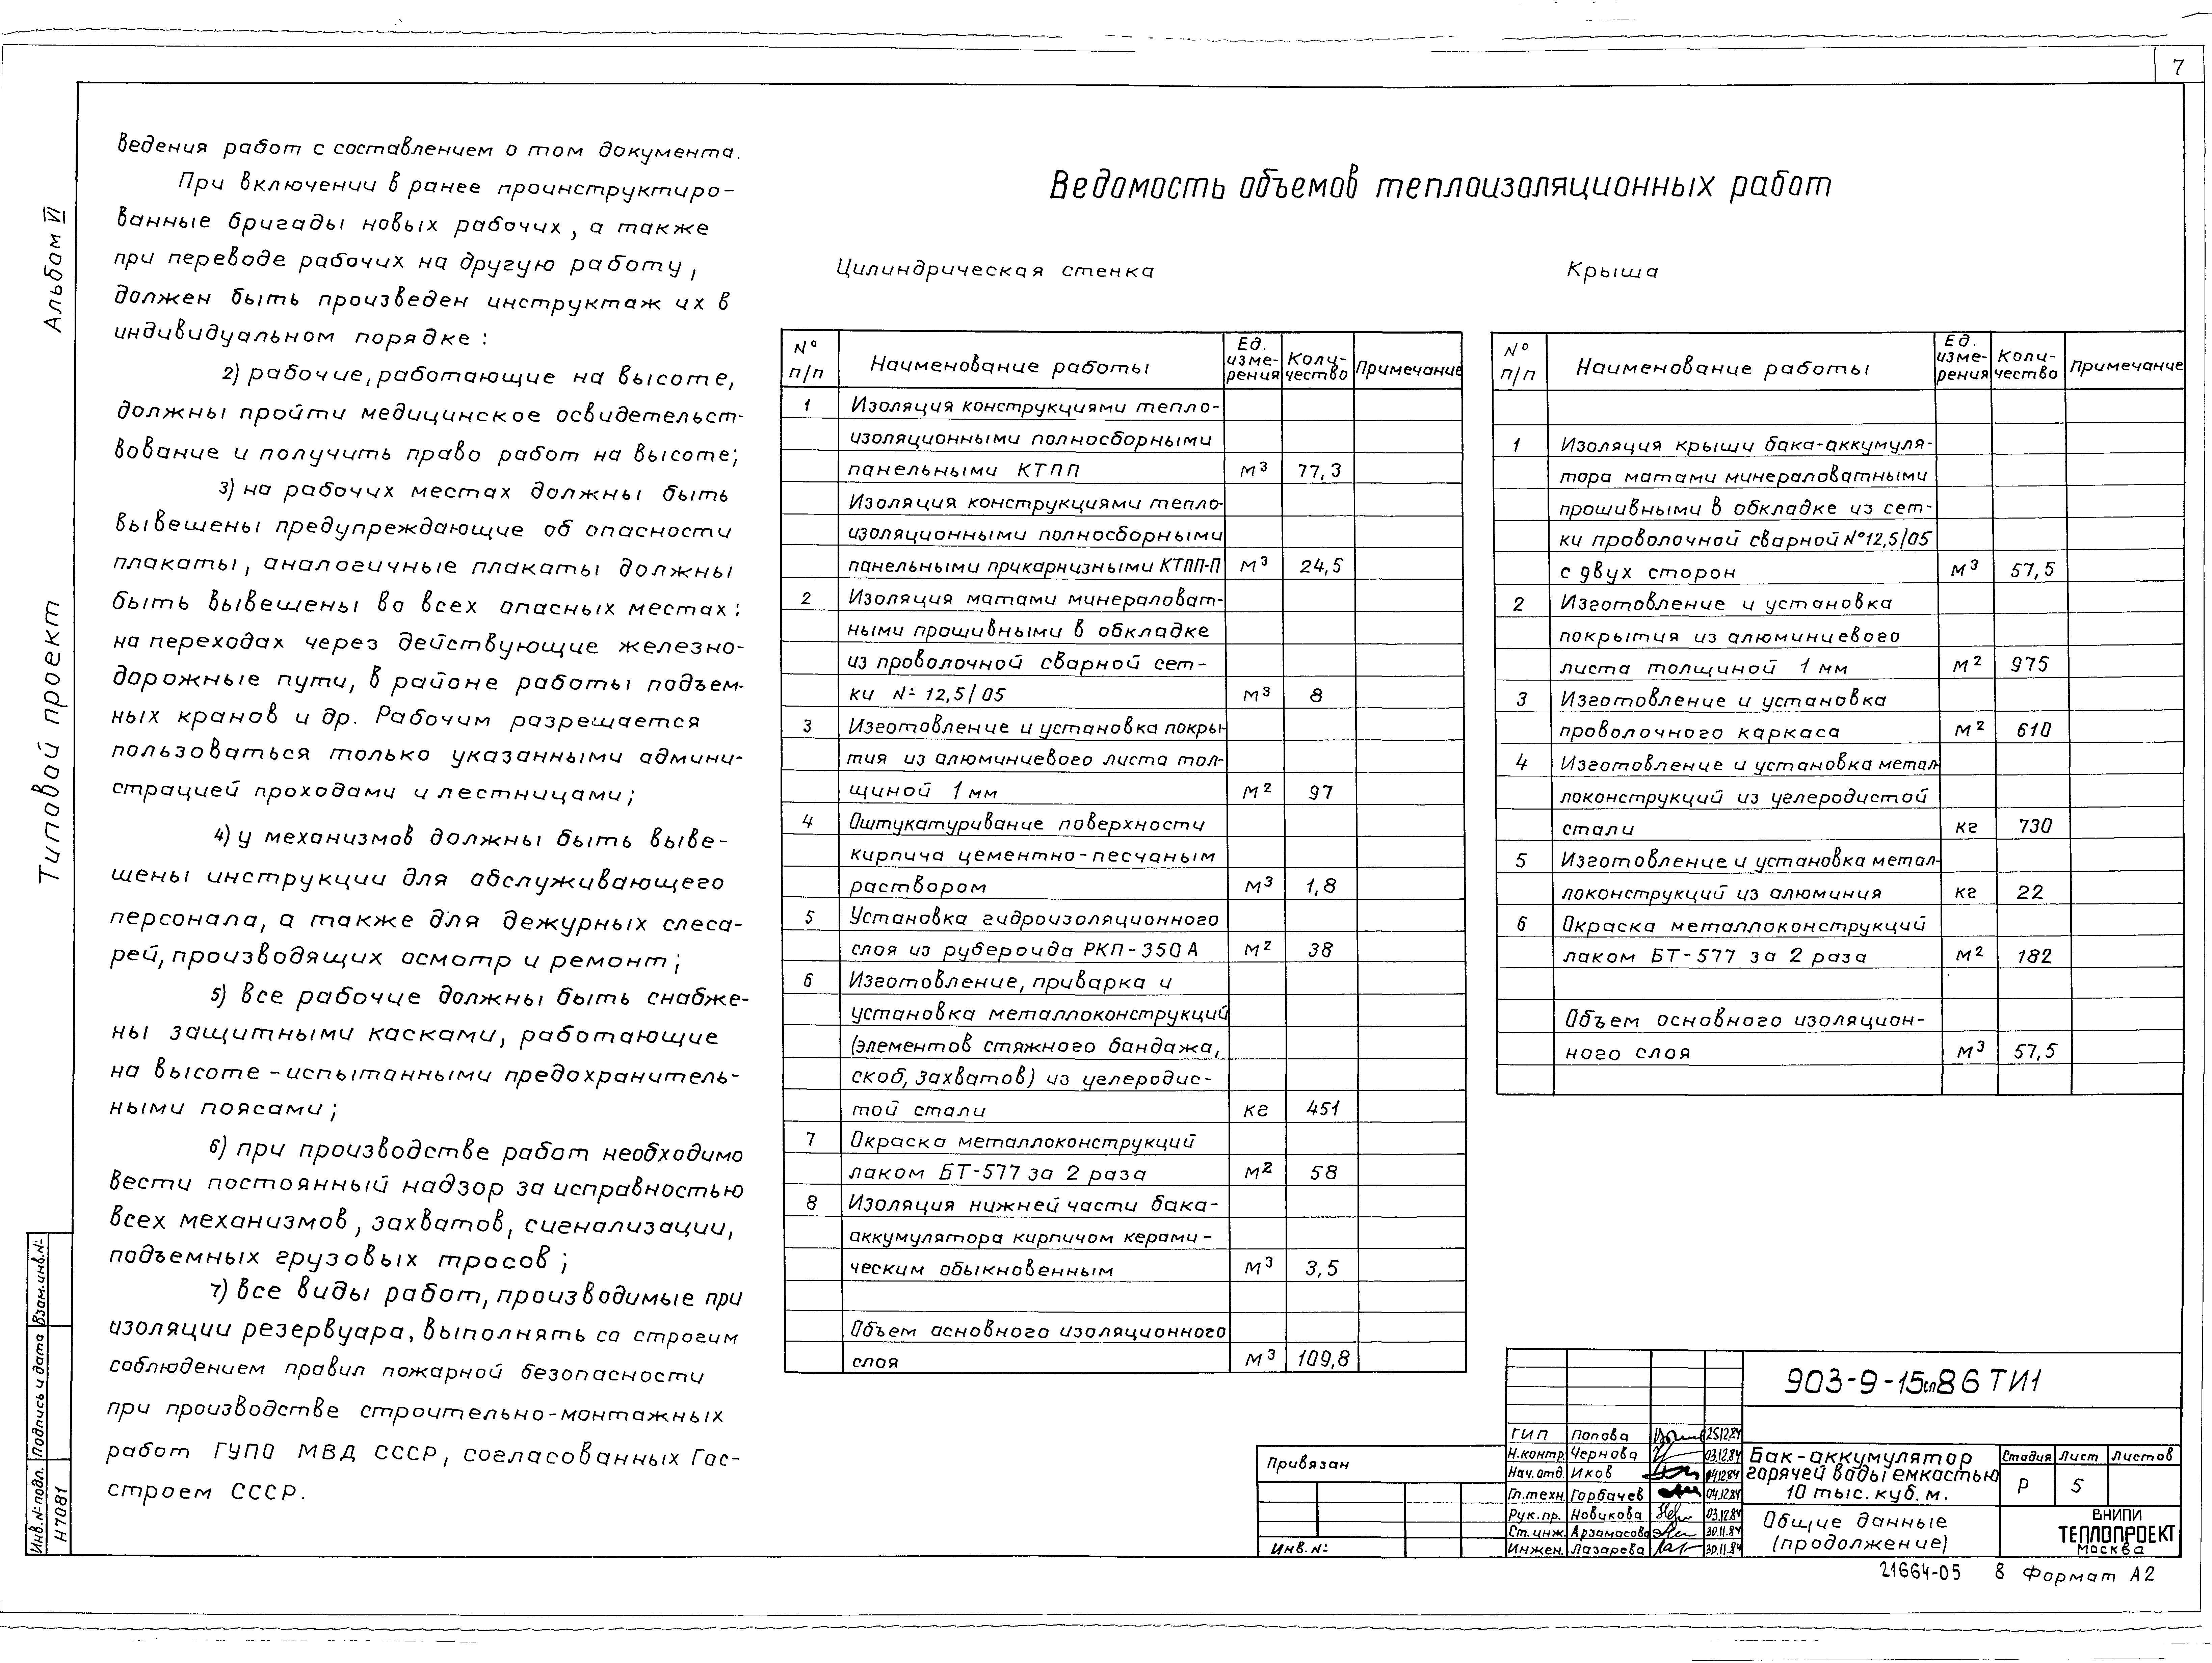 7
Альбом VI
Типовой проект
ведения работ с составлением о том документа.
При включении в ранее проинструктиро-
ванные бригады новых рабочих, а также
при переводе рабочих на другую работу,
должен быть произведен инструктаж их в
индивидуальном порядке:
2) рабочие, работающие на высоте,
должны пройти медицинское освидетельст-
вование и получить право работ на высоте;
3) на рабочих местах должны быть
вывешены предупреждающие об опасности
плакаты, аналогичные плакаты должны
быть вывешены во всех опасных местах:
на переходах через действующие железно-
дорожные пути, в районе работы подъем-
ных кранов и др. Рабочим разрешается
пользоваться только указанными админи-
страцией проходами и лестницами;
4) у механизмов должны быть выве-
шены инструкции для обслуживающего
персонала, а также для дежурных слеса-
рей, производящих осмотр и ремонт;
5) все рабочие должны быть снабже-
ны защитными касками, работающие
на высоте - испытанными предохранитель-
ными поясами;
6) при производстве работ необходимо
вести постоянный надзор за исправностью
всех механизмов, захватов, сигнализации,
подъемных грузовых тросов;
7) все виды работ, производимые при
изоляции резервуара, выполнять со строгим
соблюдением правил пожарной безопасности
при производстве строительно-монтажных
работ ГУПО МВД СССР, согласованных Гос-
строем СССР.
Ведомость объемов теплоизоляционных работ
Цилиндрическая стенка
№ п/п Наименование работы Ед. измерения Количество Примечание
1 Изоляция конструкциями тепло-
изоляционными полносборными
панельными КТПП м³ 77,3
Изоляция конструкциями тепло-
изоляционными полносборными
панельными прикарнизными КТПП-П м³ 24,5
2 Изоляция матами минераловат-
ными прошивными в обкладке
из проволочной сварной сет-
ки № 12,5/05 м³ 8
3 Изготовление и установка покры-
тия из алюминиевого листа тол-
щиной 1 мм м² 97
4 Оштукатуривание поверхности
кирпича цементно-песчаным
раствором м³ 1,8
5 Установка гидроизоляционного
слоя из рубероида РКП-350А м² 38
6 Изготовление, приварка и
установка металлоконструкций
(элементов стяжного бандажа,
скоб, захватов) из углеродис-
той стали кг 451
7 Окраска металлоконструкций
лаком БТ-577 за 2 раза м² 58
8 Изоляция нижней части бака-
аккумулятора кирпичом керами-
ческим обыкновенным м³ 3,5
Объем основного изоляционного
слоя м³ 109,8
Крыша
№ п/п Наименование работы Ед. измерения Количество Примечание
1 Изоляция крыши бака-аккумуля-
тора матами минераловатными
прошивными в обкладке из сет-
ки проволочной сварной №12,5/05
с двух сторон м³ 57,5
2 Изготовление и установка
покрытия из алюминиевого
листа толщиной 1 мм м² 975
3 Изготовление и установка
проволочного каркаса м² 610
4 Изготовление и установка метал-
локонструкций из углеродистой
стали кг 730
5 Изготовление и установка метал-
локонструкций из алюминия кг 22
6 Окраска металлоконструкций
лаком БТ-577 за 2 раза м² 182
Объем основного изоляцион-
ного слоя м³ 57,5
903-9-15сп86 ТИ1
ГИП Попова 25.12.84
Н.контр. Чернова 03.12.84
Нач.отд. Иков 04.12.84
Гл.техн. Горбачев 04.12.84
Рук.пр. Новикова 03.12.84
Ст.инж. Арзамасова 30.11.84
Инжен. Лазарева 30.11.84
Бак-аккумулятор
горячей воды емкостью
10 тыс. куб. м.
Стадия Лист Листов
Р 5
Общие данные
(продолжение)
ВНИПИ
ТЕПЛОПРОЕКТ
Москва
Привязан
Инв. №
Взам.инв.№
Подпись и дата
Инв.№ подл.
Н7081
21664-05 8 Формат А2